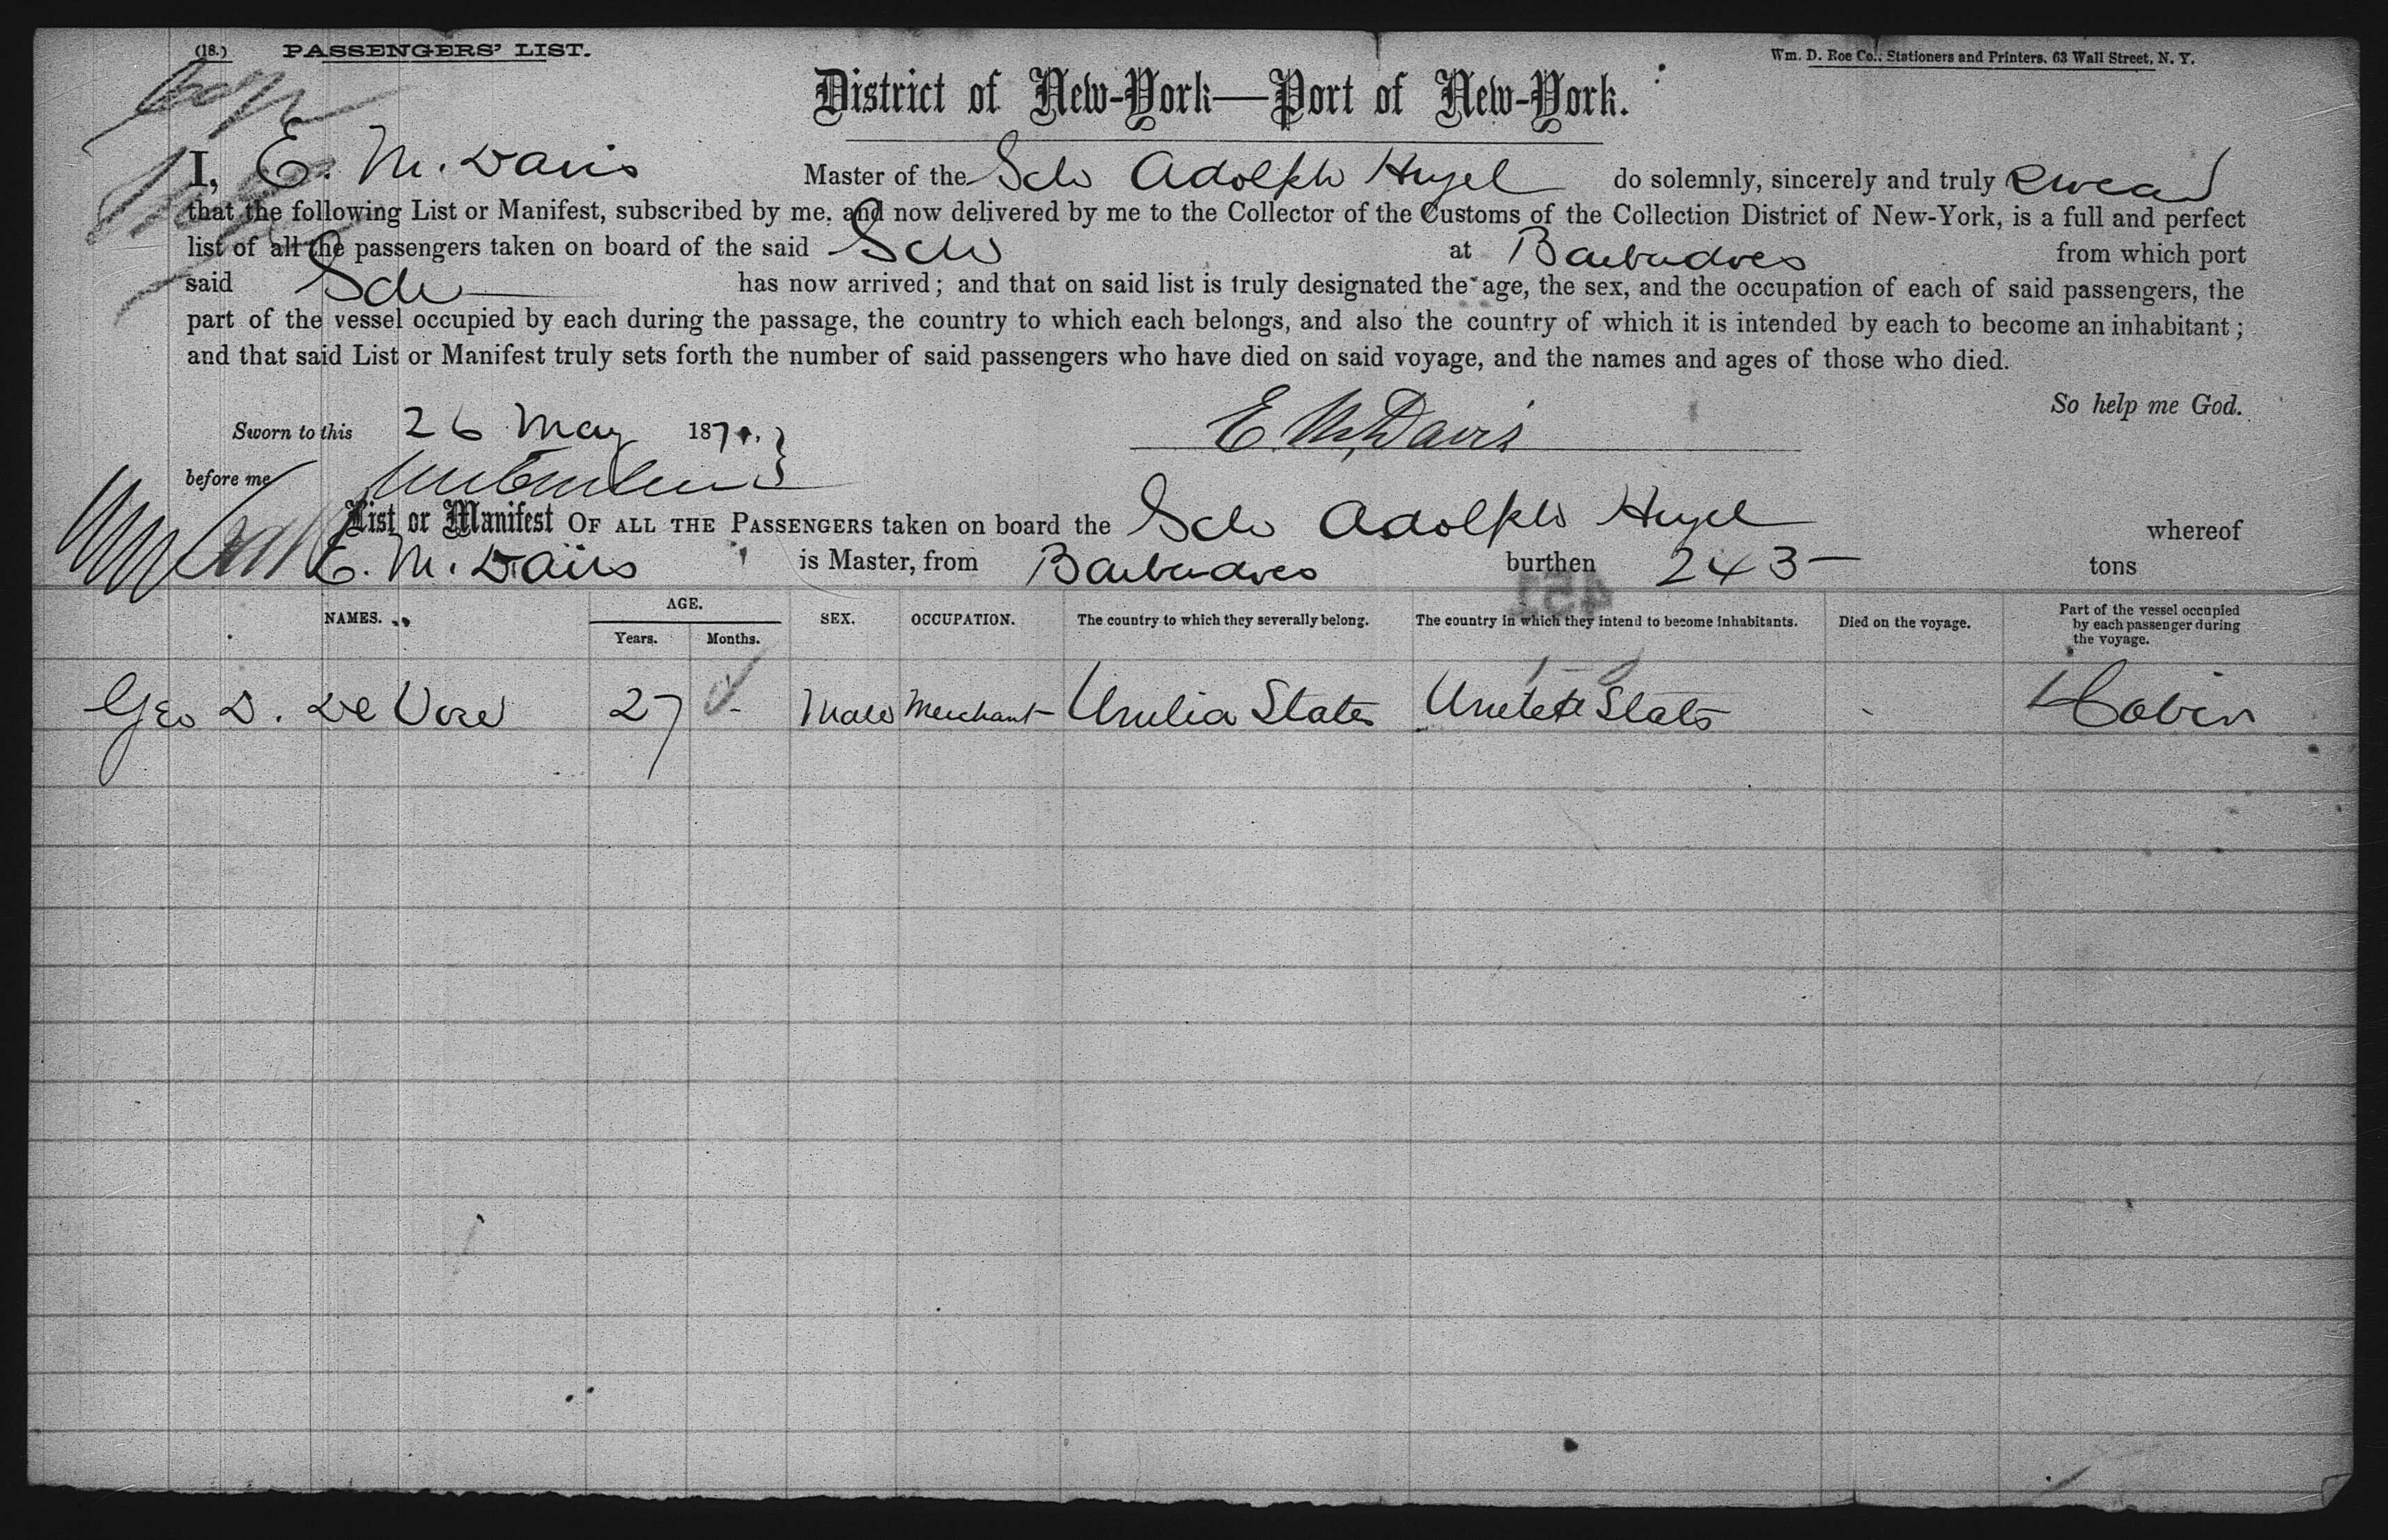 (18.) PASSENGERS' LIST.
Wm. D. Roe Co., Stationers and Printers, 63 Wall Street, N. Y.
District of New-York—Port of New-York.
I, E. M. Davis Master of the Sch Adolph Hugel do solemnly, sincerely and truly Swear
that the following List or Manifest, subscribed by me, and now delivered by me to the Collector of the Customs of the Collection District of New-York, is a full and perfect
list of all the passengers taken on board of the said Sch at Barbadoes from which port
said Sch has now arrived; and that on said list is truly designated the age, the sex, and the occupation of each of said passengers, the
part of the vessel occupied by each during the passage, the country to which each belongs, and also the country of which it is intended by each to become an inhabitant;
and that said List or Manifest truly sets forth the number of said passengers who have died on said voyage, and the names and ages of those who died.
So help me God.
Sworn to this 26 May 187
E. M. Davis
before me
List or Manifest OF ALL THE PASSENGERS taken on board the Sch Adolph Hugel whereof
E. M. Davis is Master, from Barbadoes burthen 243 tons
NAMES. AGE. Years. Months. SEX. OCCUPATION. The country to which they severally belong. The country in which they intend to become inhabitants. Died on the voyage. Part of the vessel occupied by each passenger during the voyage.
Geo D. De Vore 27 - Male Merchant United States United States - Cabin